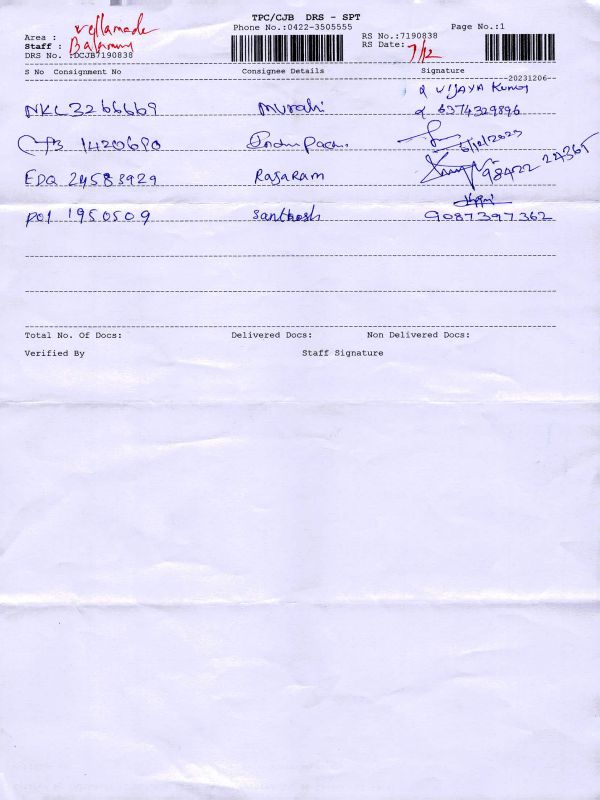 TPC/CJB DRS - SPT
Area : vellamade
Phone No.:0422-3505555
Page No.:1
Staff : Balamuru
RS No.:7190838
DRS No. :DCJB7190838
RS Date: 7/12
S No Consignment No Consignee Details Signature
20231206
R VIJAYA Kumar
NKL3266669 Murali 6374329896
1420690 6/12/2023
EDQ 24583929 Rajaram 98422 24365
P01 1950509 Santhosh 9087397362
Total No. Of Docs: Delivered Docs: Non Delivered Docs:
Verified By Staff Signature